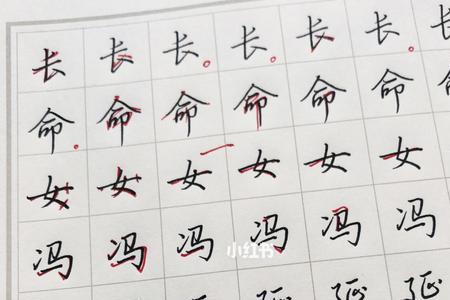 长长长长长长长
命命命命命命
女女女女女女
冯冯冯冯冯冯
小红书